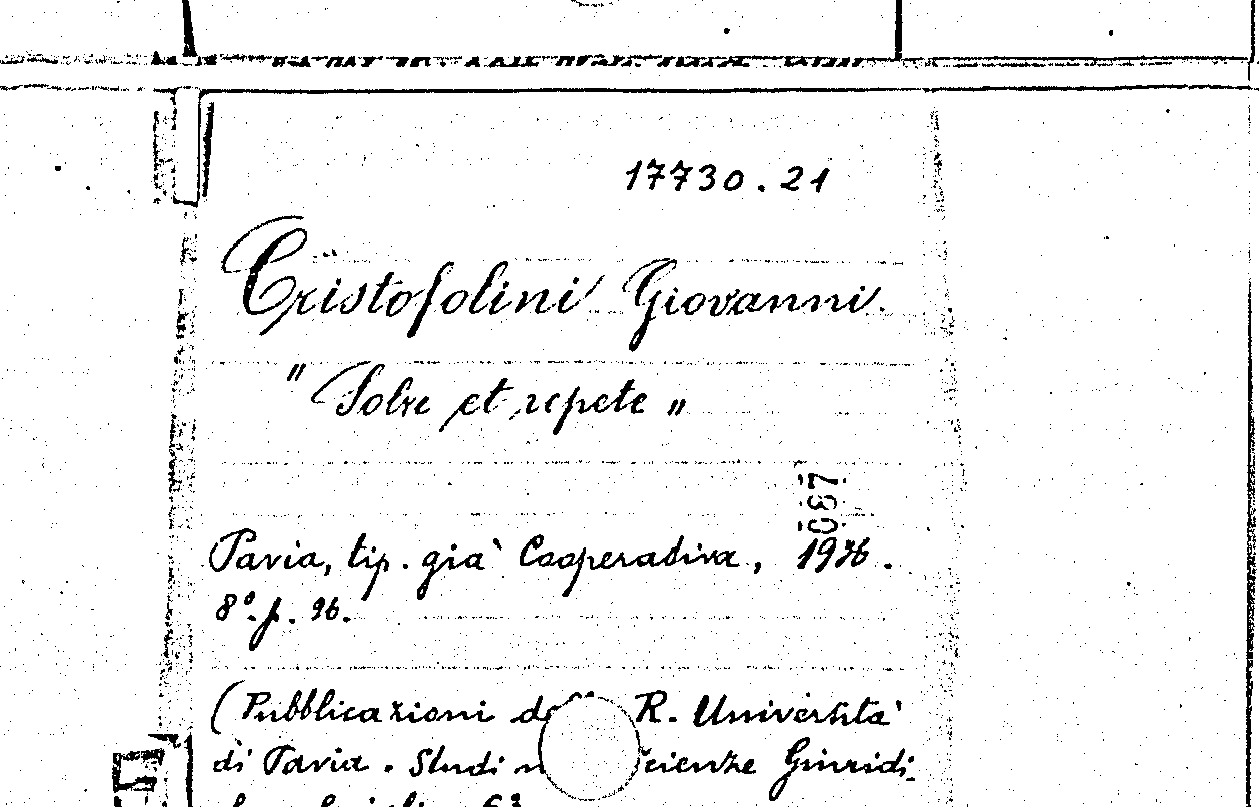 17730.21
Cristofolini Giovanni.
" Solve et repete "
Pavia, tip. già Cooperativa,
8°. p. 96.
(Pubblicazioni R. Università
di Pavia. Studi Giuridi-